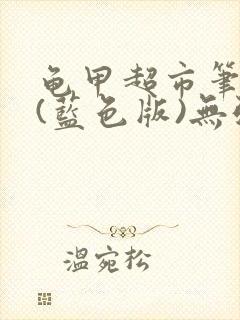 龜甲超市筆
(藍色版)無
溫宛松